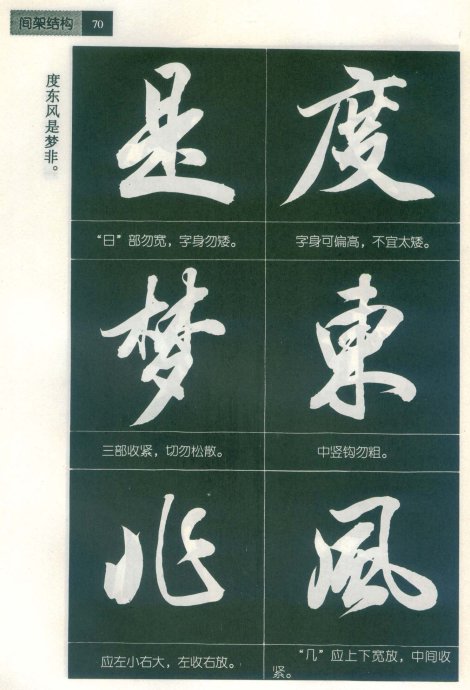 间架结构 70
度东风是梦非。
度
字身可偏高，不宜太矮。
東
中竖钩勿粗。
風
“几”应上下宽放，中间收
紧。
是
“日”部勿宽，字身勿矮。
梦
三部收紧，切勿松散。
非
应左小右大，左收右放。